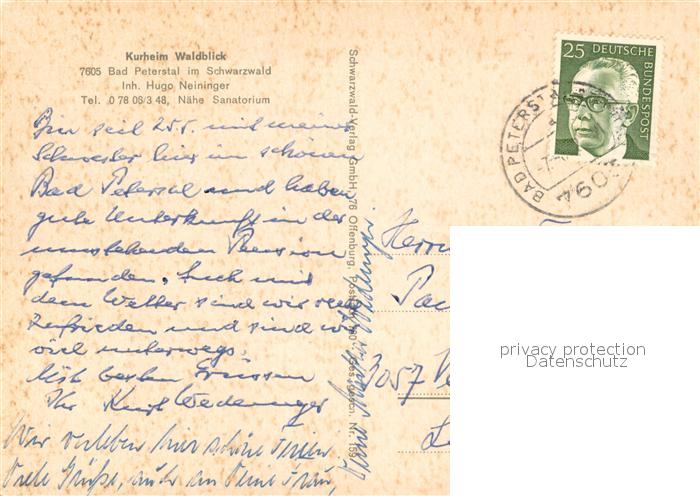 Kurheim Waldblick
7605 Bad Peterstal im Schwarzwald
Inh. Hugo Neininger
Tel. 0 78 06/3 48, Nähe Sanatorium
Bin seit 25.5. mit meiner
Schwester hier im schönen
Bad Peterstal und haben
gute Unterkunft in der
umstehenden Pension
gefunden. Auch mit
dem Wetter sind wir sehr
zufrieden und sind wir
viel unterwegs.
Mit besten Grüssen
Ihr Kurt
Wir verleben hier schöne Ferien
Viele Grüße, auch an Deine Frau,
Schwarzwald-Verlag GmbH, 76 Offenburg, Postfach
Nr. 159
25 DEUTSCHE
BUNDESPOST
BAD PETERSTAL
7605
Herrn
3057
privacy protection
Datenschutz